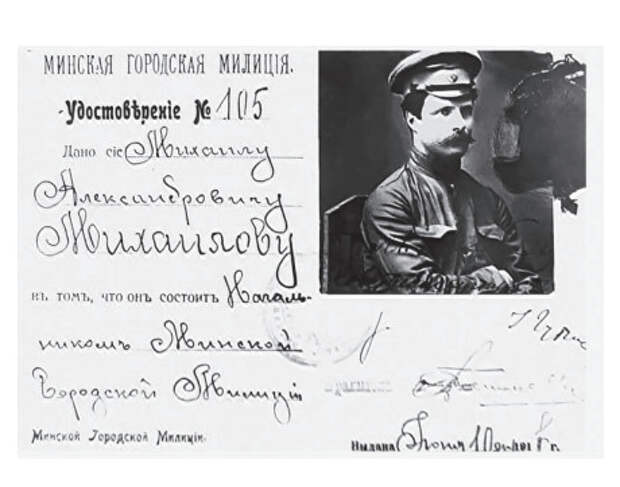 МИНСКАЯ ГОРОДСКАЯ МИЛИЦІЯ.
Удостовѣреніе № 105
Дано сіе Михаилу
Александровичу
Михайлову
въ томъ, что онъ состоитъ Началь-
никомъ Минской
Городской Милиціи
Минской Городской Милиціи.